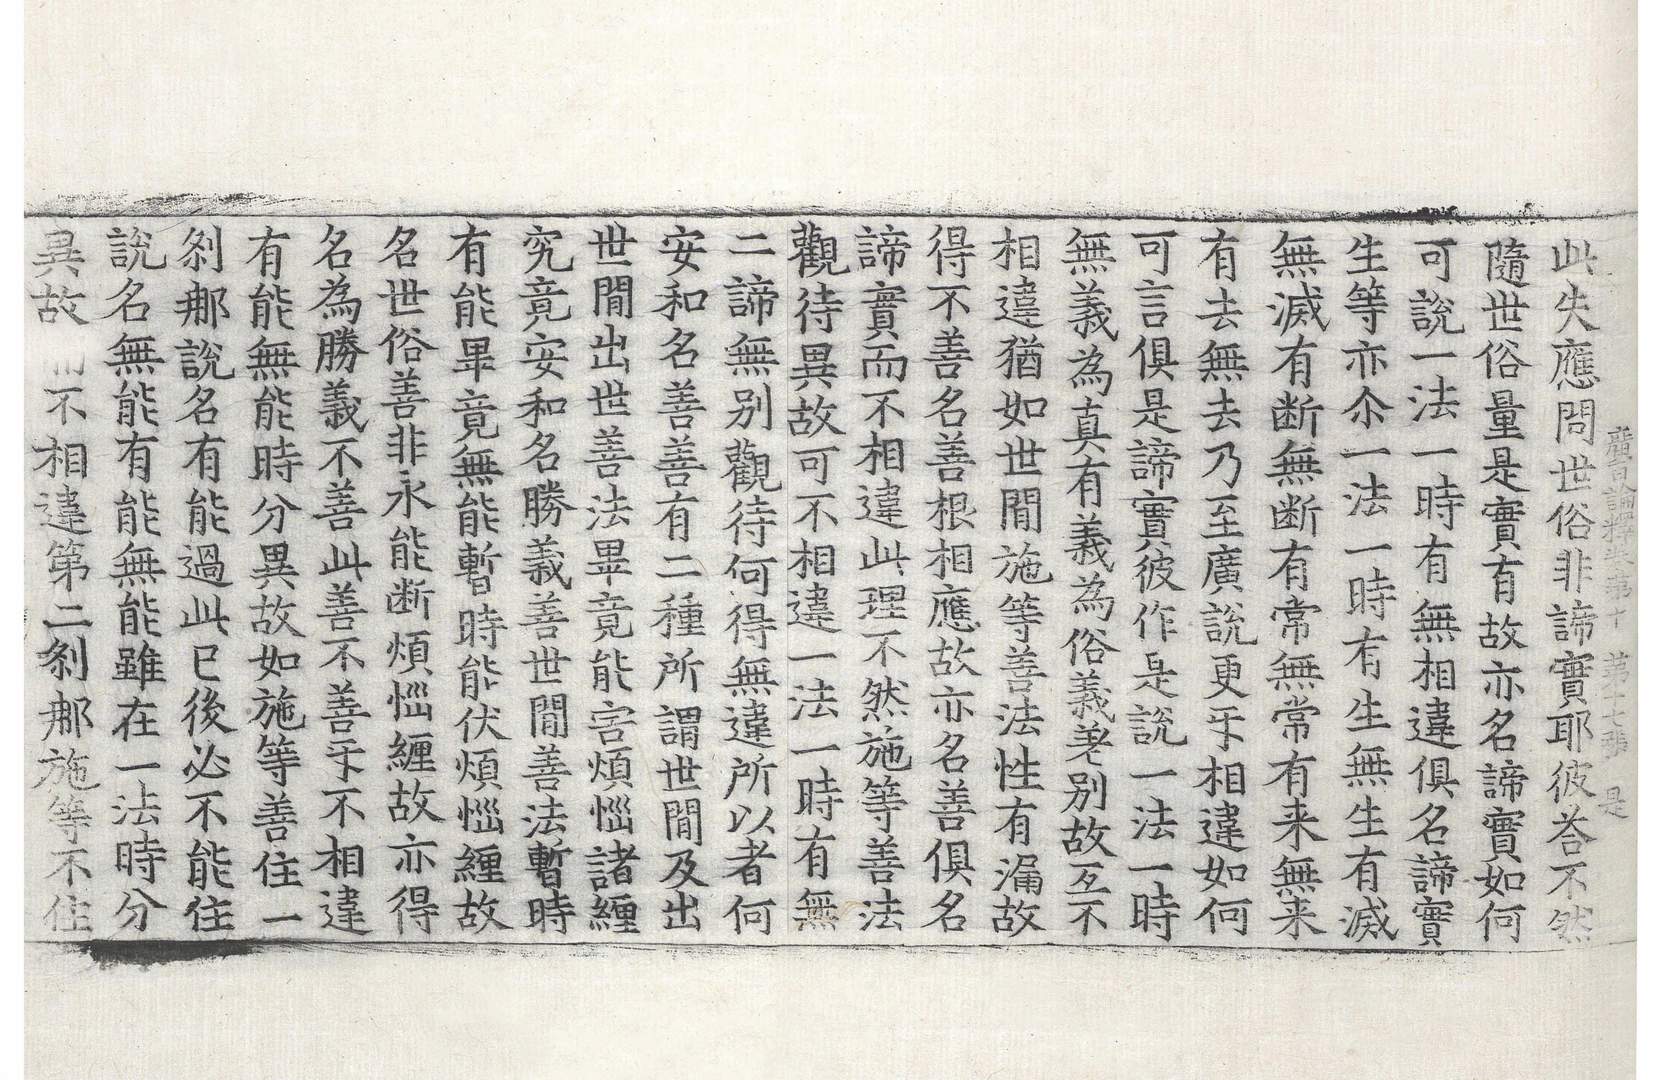 廣百論釋卷第十 第十七張 是
此失應問世俗非諦實耶彼荅不然
隨世俗量是實有故亦名諦實如何
可說一法一時有無相違俱名諦實
生等亦尒一法一時有生無生有滅
無滅有断無断有常無常有来無来
有去無去乃至廣說更乐相違如何
可言俱是諦實彼作是說一法一時
無義為真有義為俗義差別故互不
相違猶如世間施等善法性有漏故
得不善名善根相應故亦名善俱名
諦實而不相違此理不然施等善法
觀待異故可不相違一法一時有無
二諦無別觀待何得無違所以者何
安和名善善有二種所謂世間及出
世間出世善法畢竟能害煩惱諸纒
究竟安和名勝義善世間善法暫時
有能畢竟無能暫時能伏煩惱纒故
名世俗善非永能断煩惱纒故亦得
名為勝義不善此善不善乐不相違
有能無能時分異故如施等善住一
刹那說名有能過此已後必不能住
說名無能有能無能雖在一法時分
異故而不相違第二刹那施等不住